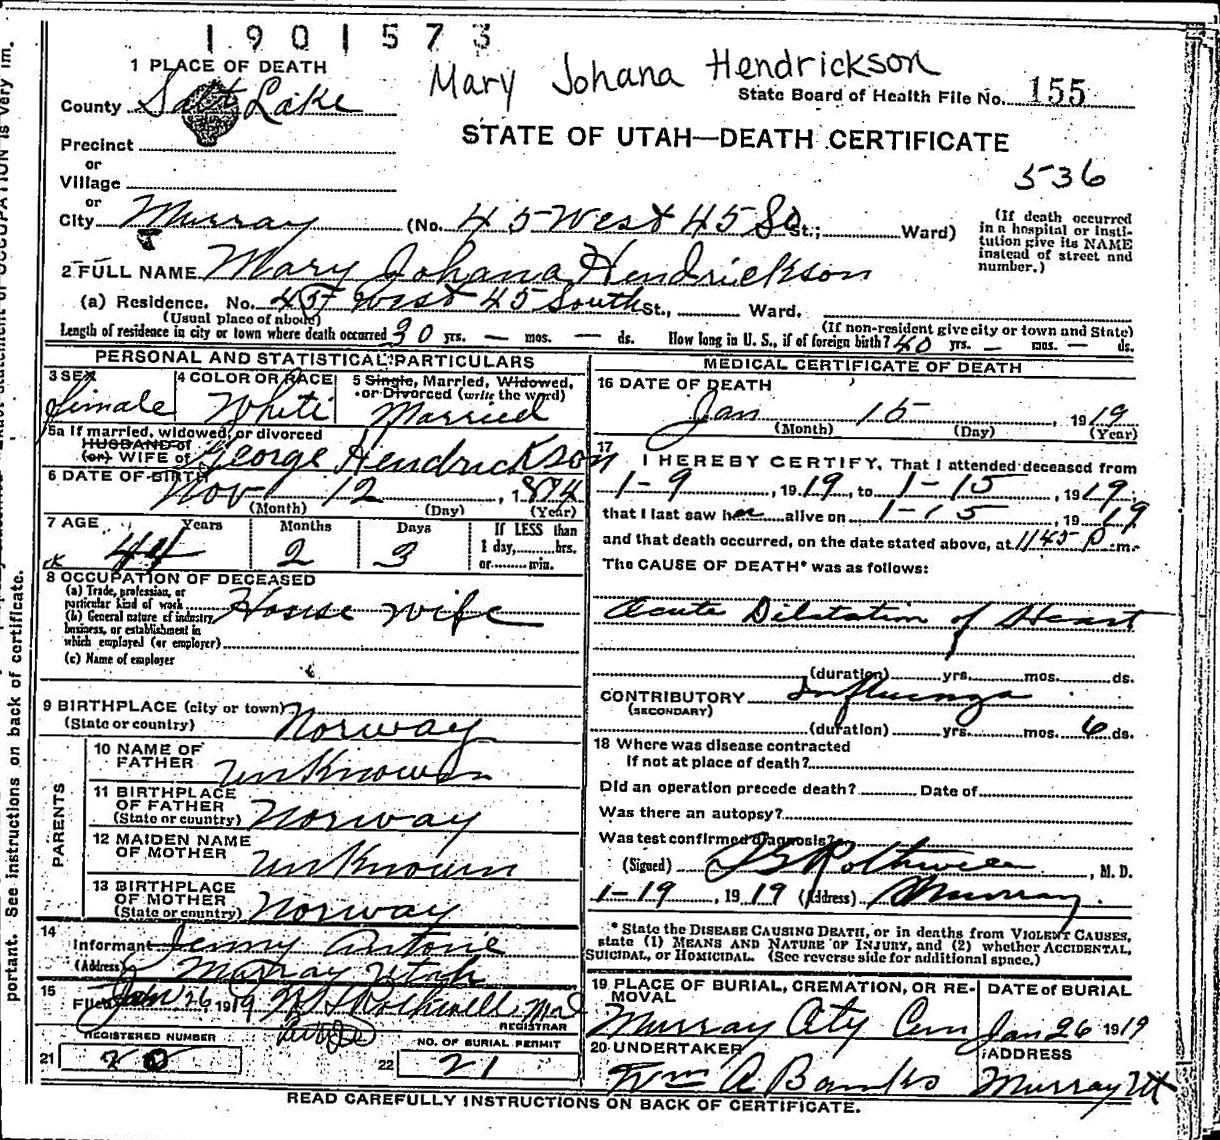 1901573
Mary Johana Hendrickson
1 PLACE OF DEATH
State Board of Health File No. 155
County Salt Lake
STATE OF UTAH—DEATH CERTIFICATE
Precinct
or
536
Village
or
City Murray (No. 45 West 45 So St.; Ward)
(If death occurred in a hospital or institution give its NAME instead of street and number.)
2 FULL NAME Mary Johana Hendrickson
(a) Residence. No. 45 West 45 South St., Ward.
(Usual place of abode) (If non-resident give city or town and State)
Length of residence in city or town where death occurred 30 yrs. — mos. — ds. How long in U. S., if of foreign birth? 40 yrs. — mos. — ds.
PERSONAL AND STATISTICAL PARTICULARS
3 SEX 4 COLOR OR RACE 5 Single, Married, Widowed, or Divorced (write the word)
Female White Married
5a If married, widowed, or divorced
HUSBAND of
(or) WIFE of George Hendrickson
6 DATE OF BIRTH Nov 12, 1874
(Month) (Day) (Year)
7 AGE Years Months Days If LESS than
44 2 3 1 day, hrs.
ok or min.
8 OCCUPATION OF DECEASED
(a) Trade, profession, or
particular kind of work House wife
(b) General nature of industry,
business, or establishment in
which employed (or employer)
(c) Name of employer
9 BIRTHPLACE (city or town)
(State or country) Norway
PARENTS
10 NAME OF FATHER unKnown
11 BIRTHPLACE OF FATHER
(State or country) Norway
12 MAIDEN NAME OF MOTHER unKnown
13 BIRTHPLACE OF MOTHER
(State or country) Norway
14
Informant Jenny
(Address) Murray Utah
15
Filed Jan 26 1919
REGISTRAR
REGISTERED NUMBER NO. OF BURIAL PERMIT
21 20 22 21
MEDICAL CERTIFICATE OF DEATH
16 DATE OF DEATH
Jan 15, 1919
(Month) (Day) (Year)
17
I HEREBY CERTIFY, That I attended deceased from
1-9, 1919, to 1-15, 1919,
that I last saw her alive on 1-15, 1919
and that death occurred, on the date stated above, at 1145 P m.
The CAUSE OF DEATH* was as follows:
Acute Dilatation of Heart
(duration) yrs. mos. ds.
CONTRIBUTORY Influenza
(SECONDARY)
(duration) yrs. mos. 6 ds.
18 Where was disease contracted
If not at place of death?
Did an operation precede death? Date of
Was there an autopsy?
Was test confirmed diagnosis?
(Signed) Rothwell, M. D.
1-19, 1919 (Address) Murray
* State the DISEASE CAUSING DEATH, or in deaths from VIOLENT CAUSES,
state (1) MEANS AND NATURE OF INJURY, and (2) whether ACCIDENTAL,
SUICIDAL, or HOMICIDAL. (See reverse side for additional space.)
19 PLACE OF BURIAL, CREMATION, OR RE- DATE OF BURIAL
MOVAL
Murray City Cem Jan 26 1919
20 UNDERTAKER ADDRESS
Wm A Banks Murray Ut
READ CAREFULLY INSTRUCTIONS ON BACK OF CERTIFICATE.
portant. See instructions on back of certificate.
OCCUPATION is very im.